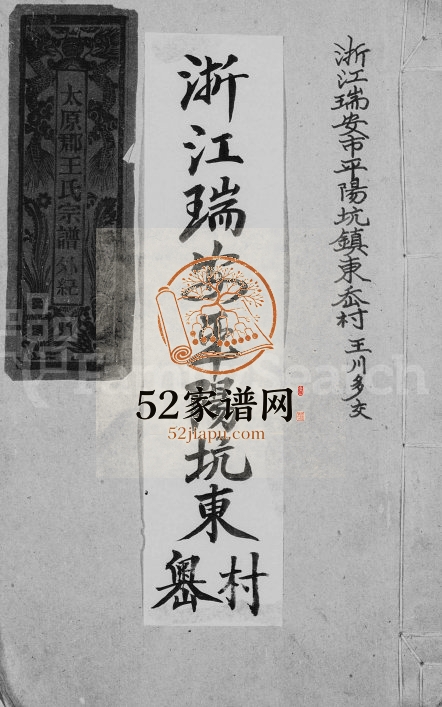 浙江瑞安市平陽坑鎮東岙村 王川多交
浙江瑞安平陽坑東嶴村
太原郡王氏宗譜外紀
52家谱网
52jiapu.com
FamilySearch